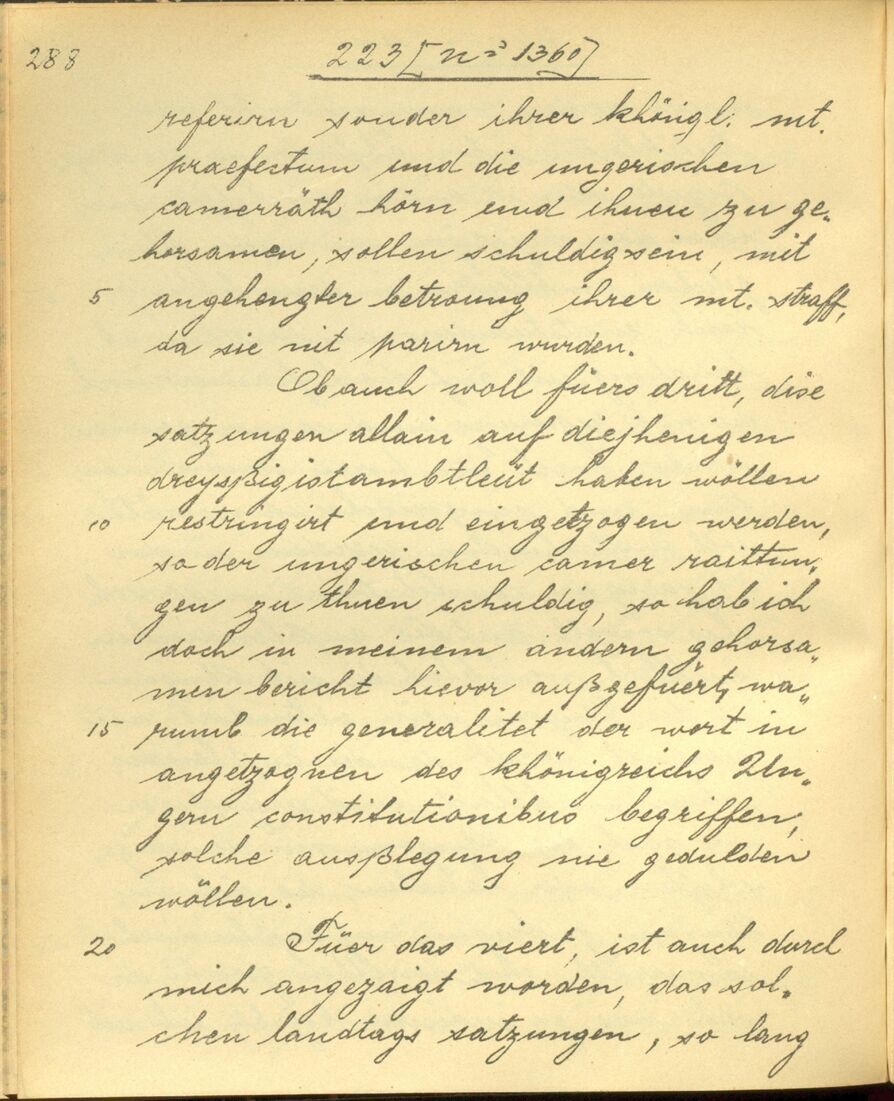 288
223 [nº 1360]
referirn sonder ihrer khönigl. mt.
praefectum und die ungerischen
camerräth hörn und ihnen zu ge„
horsamen, sollen schuldig sein, mit
5 angehengter betroung ihrer mt. straff,
da sie nit parirn wurden.
Ob auch woll füers dritt, dise
satzungen allain auf diejhenigen
dreysßigistambtleüt haben wöllen
10 restringirt und eingetzogen werden,
so der ungerischen camer raittun„
gen zu thuen schuldig, so hab ich
doch in meinem andern gehorsa„
men bericht hievor außgefüert, wa„
15 rumb die generalitet der wort in
angetzognen des khönigreichs Un„
gern constitutionibus begriffen,
solche ausßlegung nie gedulden
wöllen.
20 Füer das viert, ist auch durch
mich angezaigt worden, das sol„
chen landtags satzungen, so lang